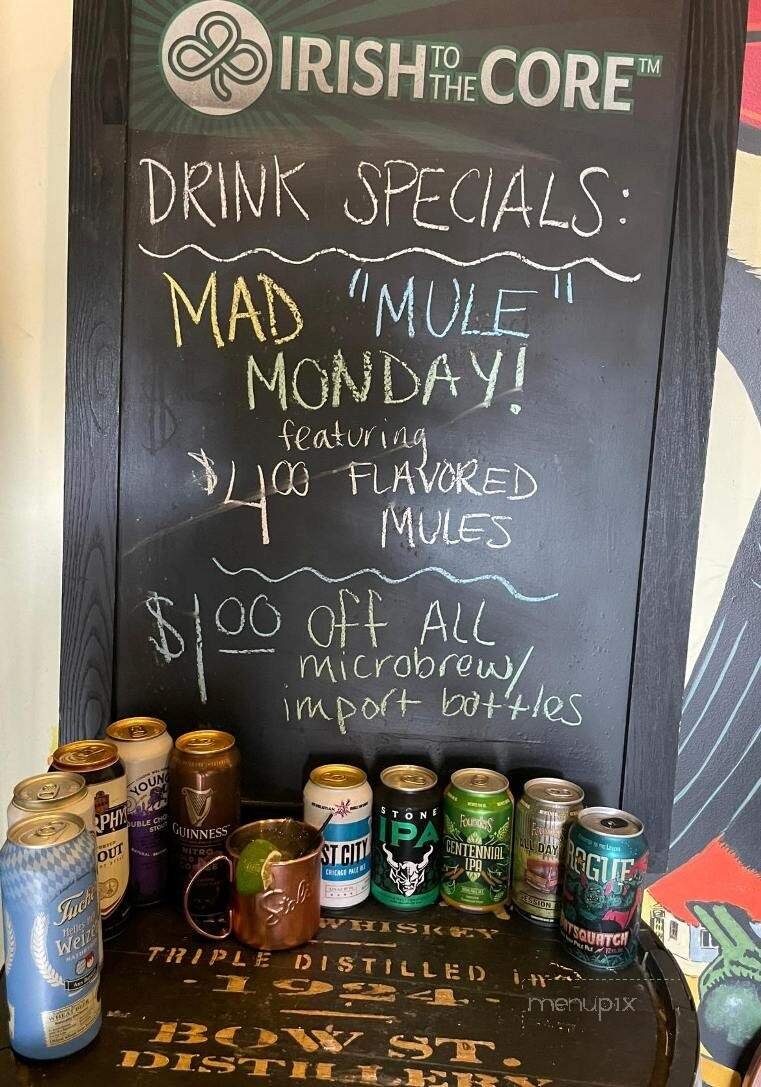 IRISH TO THE CORE™
DRINK SPECIALS:
MAD "MULE"
MONDAY!
featuring
$4.00 FLAVORED
MULES
$1.00 off ALL
microbrew/
import bottles
YOUNG
DOUBLE CHO
STOUT
RPHY
OUT
GUINNESS
NITRO
Tuche
Helles
Weize
ST CITY
CHICAGO PALE ALE
STONE
IPA
Founders
CENTENNIAL
IPA
Founders
ALL DAY
SESSION
ROGUE
ATSQUATCH
Stoli
WHISKEY
TRIPLE DISTILLED
1924
BOW ST.
DISTILLERY
menupix